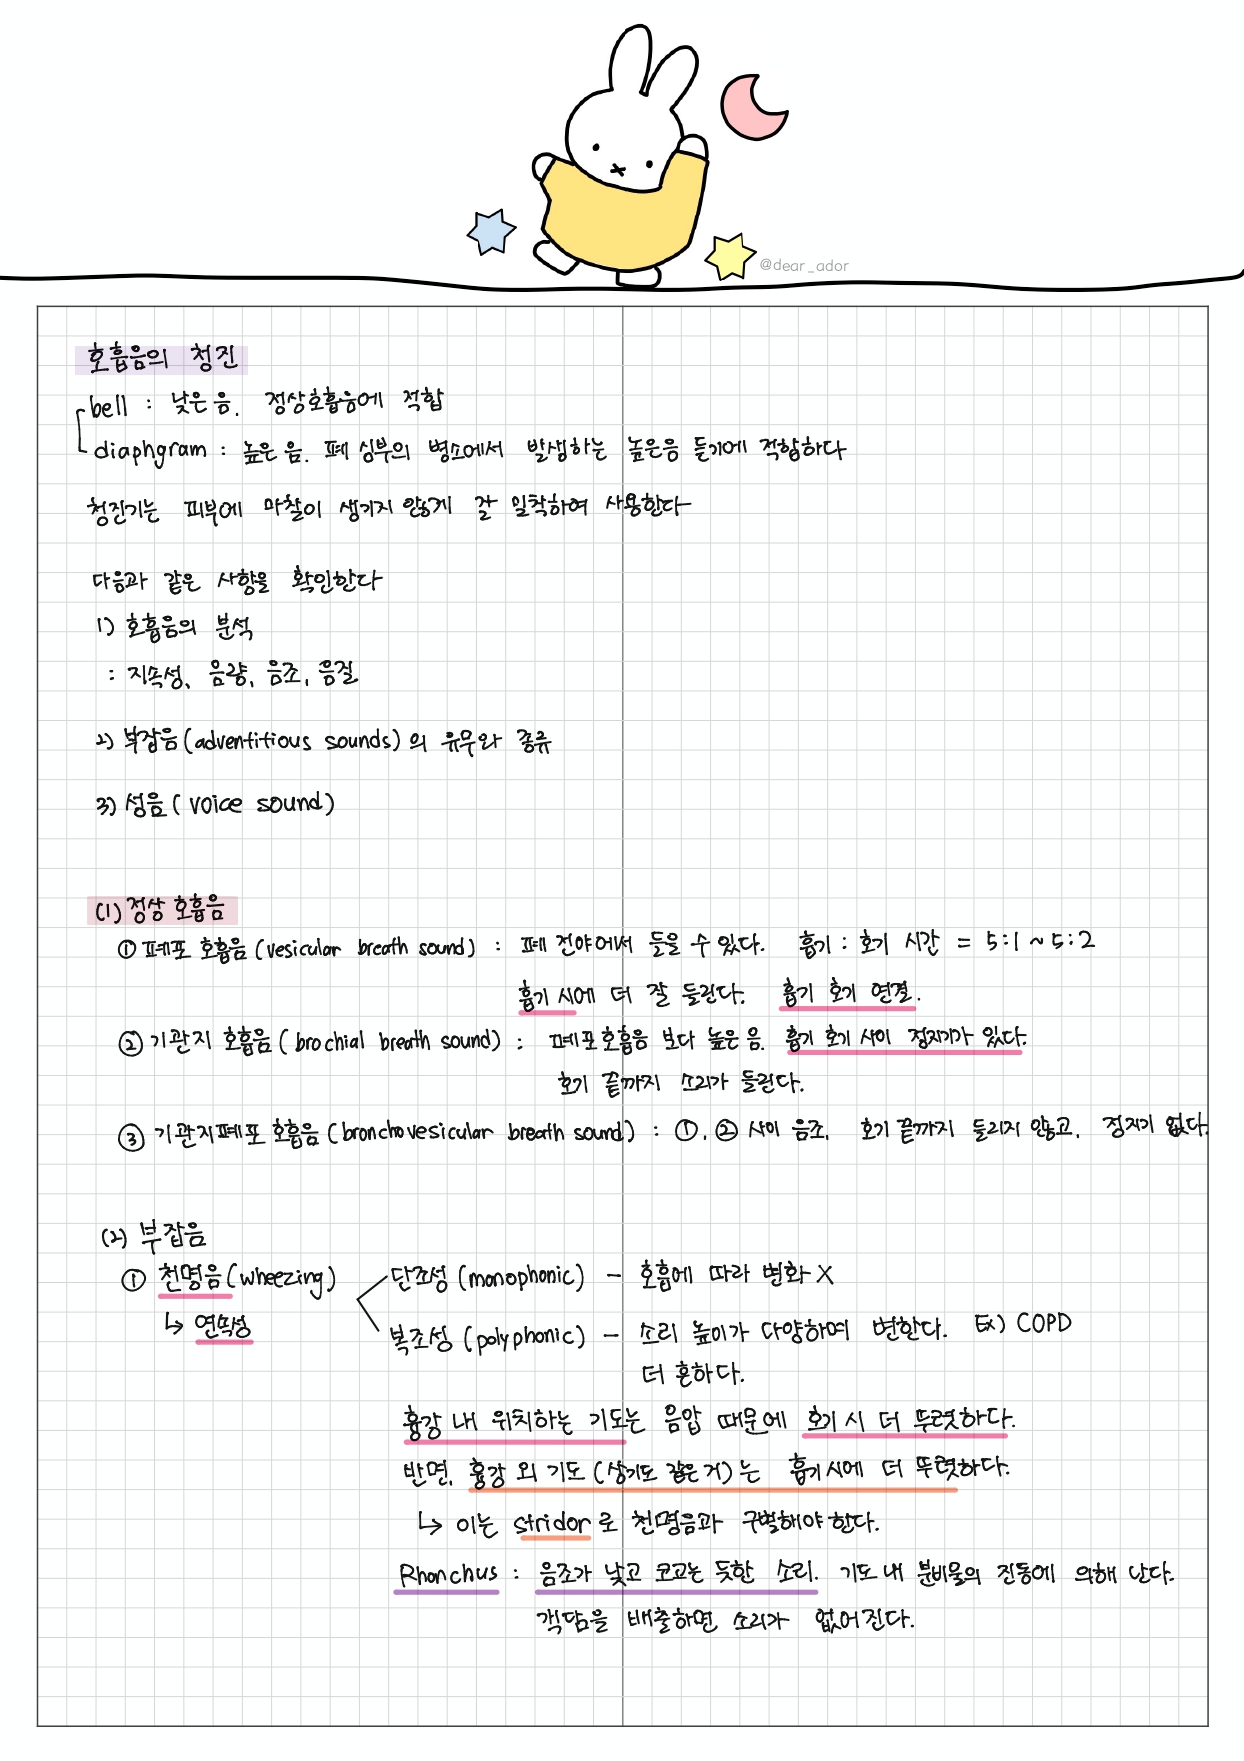 @dear_ador
호흡음의 청진
bell : 낮은 음. 정상호흡음에 적합
diaphgram : 높은 음. 폐 심부의 병소에서 발생하는 높은음 듣기에 적합하다
청진기는 피부에 마찰이 생기지 않게 잘 밀착하여 사용한다
다음과 같은 사항을 확인한다
1) 호흡음의 분석
: 지속성, 음량, 음조, 음질
2) 부잡음(adventitious sounds)의 유무와 종류
3) 성음(voice sound)
(1) 정상 호흡음
① 폐포 호흡음(vesicular breath sound) : 폐 전야에서 들을 수 있다. 흡기 : 호기 시간 = 5:1 ~ 5:2
흡기 시에 더 잘 들린다. 흡기 호기 연결.
② 기관지 호흡음(brochial breath sound) : 폐포호흡음 보다 높은 음. 흡기 호기 사이 정지기가 있다.
호기 끝까지 소리가 들린다.
③ 기관지폐포 호흡음(bronchovesicular breath sound) : ①, ② 사이 음조, 호기 끝까지 들리지 않고, 정지기 없다.
(2) 부잡음
① 천명음(wheezing) 단조성(monophonic) - 호흡에 따라 변화 X
↳ 연속성 복조성(polyphonic) - 소리 높이가 다양하며 변한다. Ex) COPD
더 흔하다.
흉강 내 위치하는 기도는 음압 때문에 호기 시 더 뚜렷하다.
반면, 흉강 외 기도(상기도 같은 거)는 흡기시에 더 뚜렷하다.
↳ 이는 stridor로 천명음과 구별해야 한다.
Rhonchus : 음조가 낮고 코고는 듯한 소리. 기도 내 분비물의 진동에 의해 난다.
객담을 배출하면 소리가 없어진다.